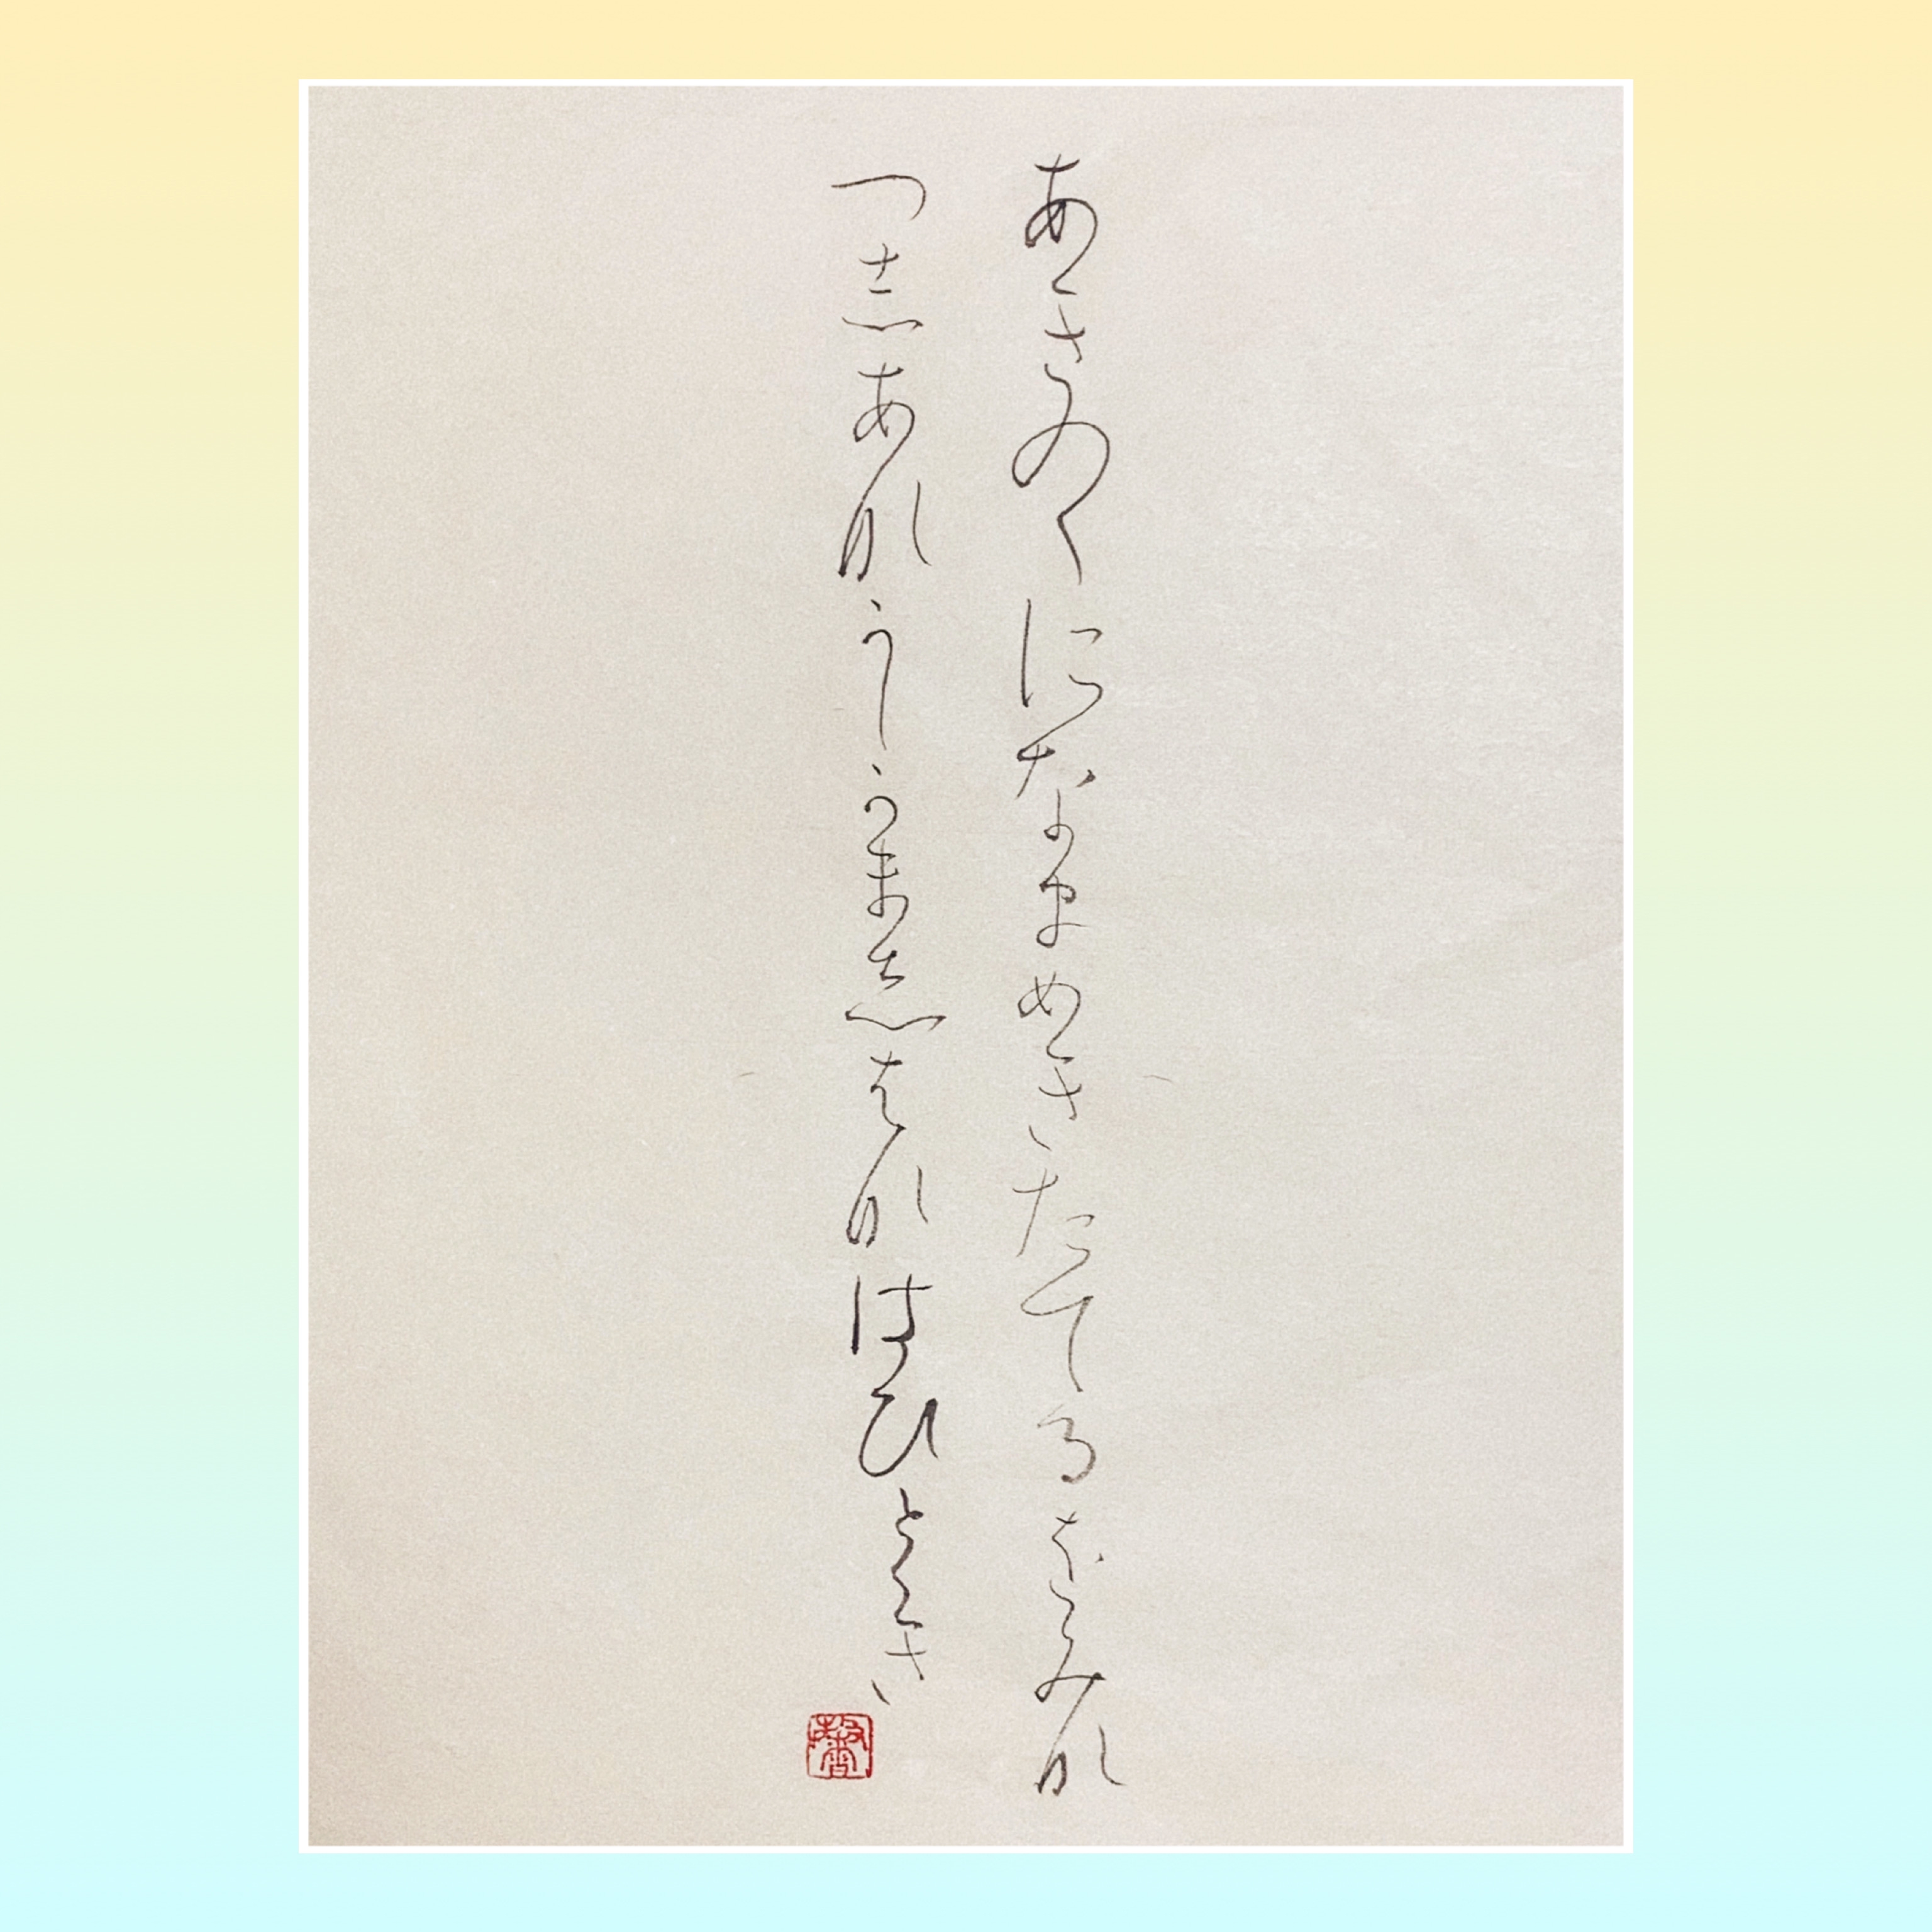 あきのゝになまめきたてるをみな
へしあなかしかましはなもひとゝき